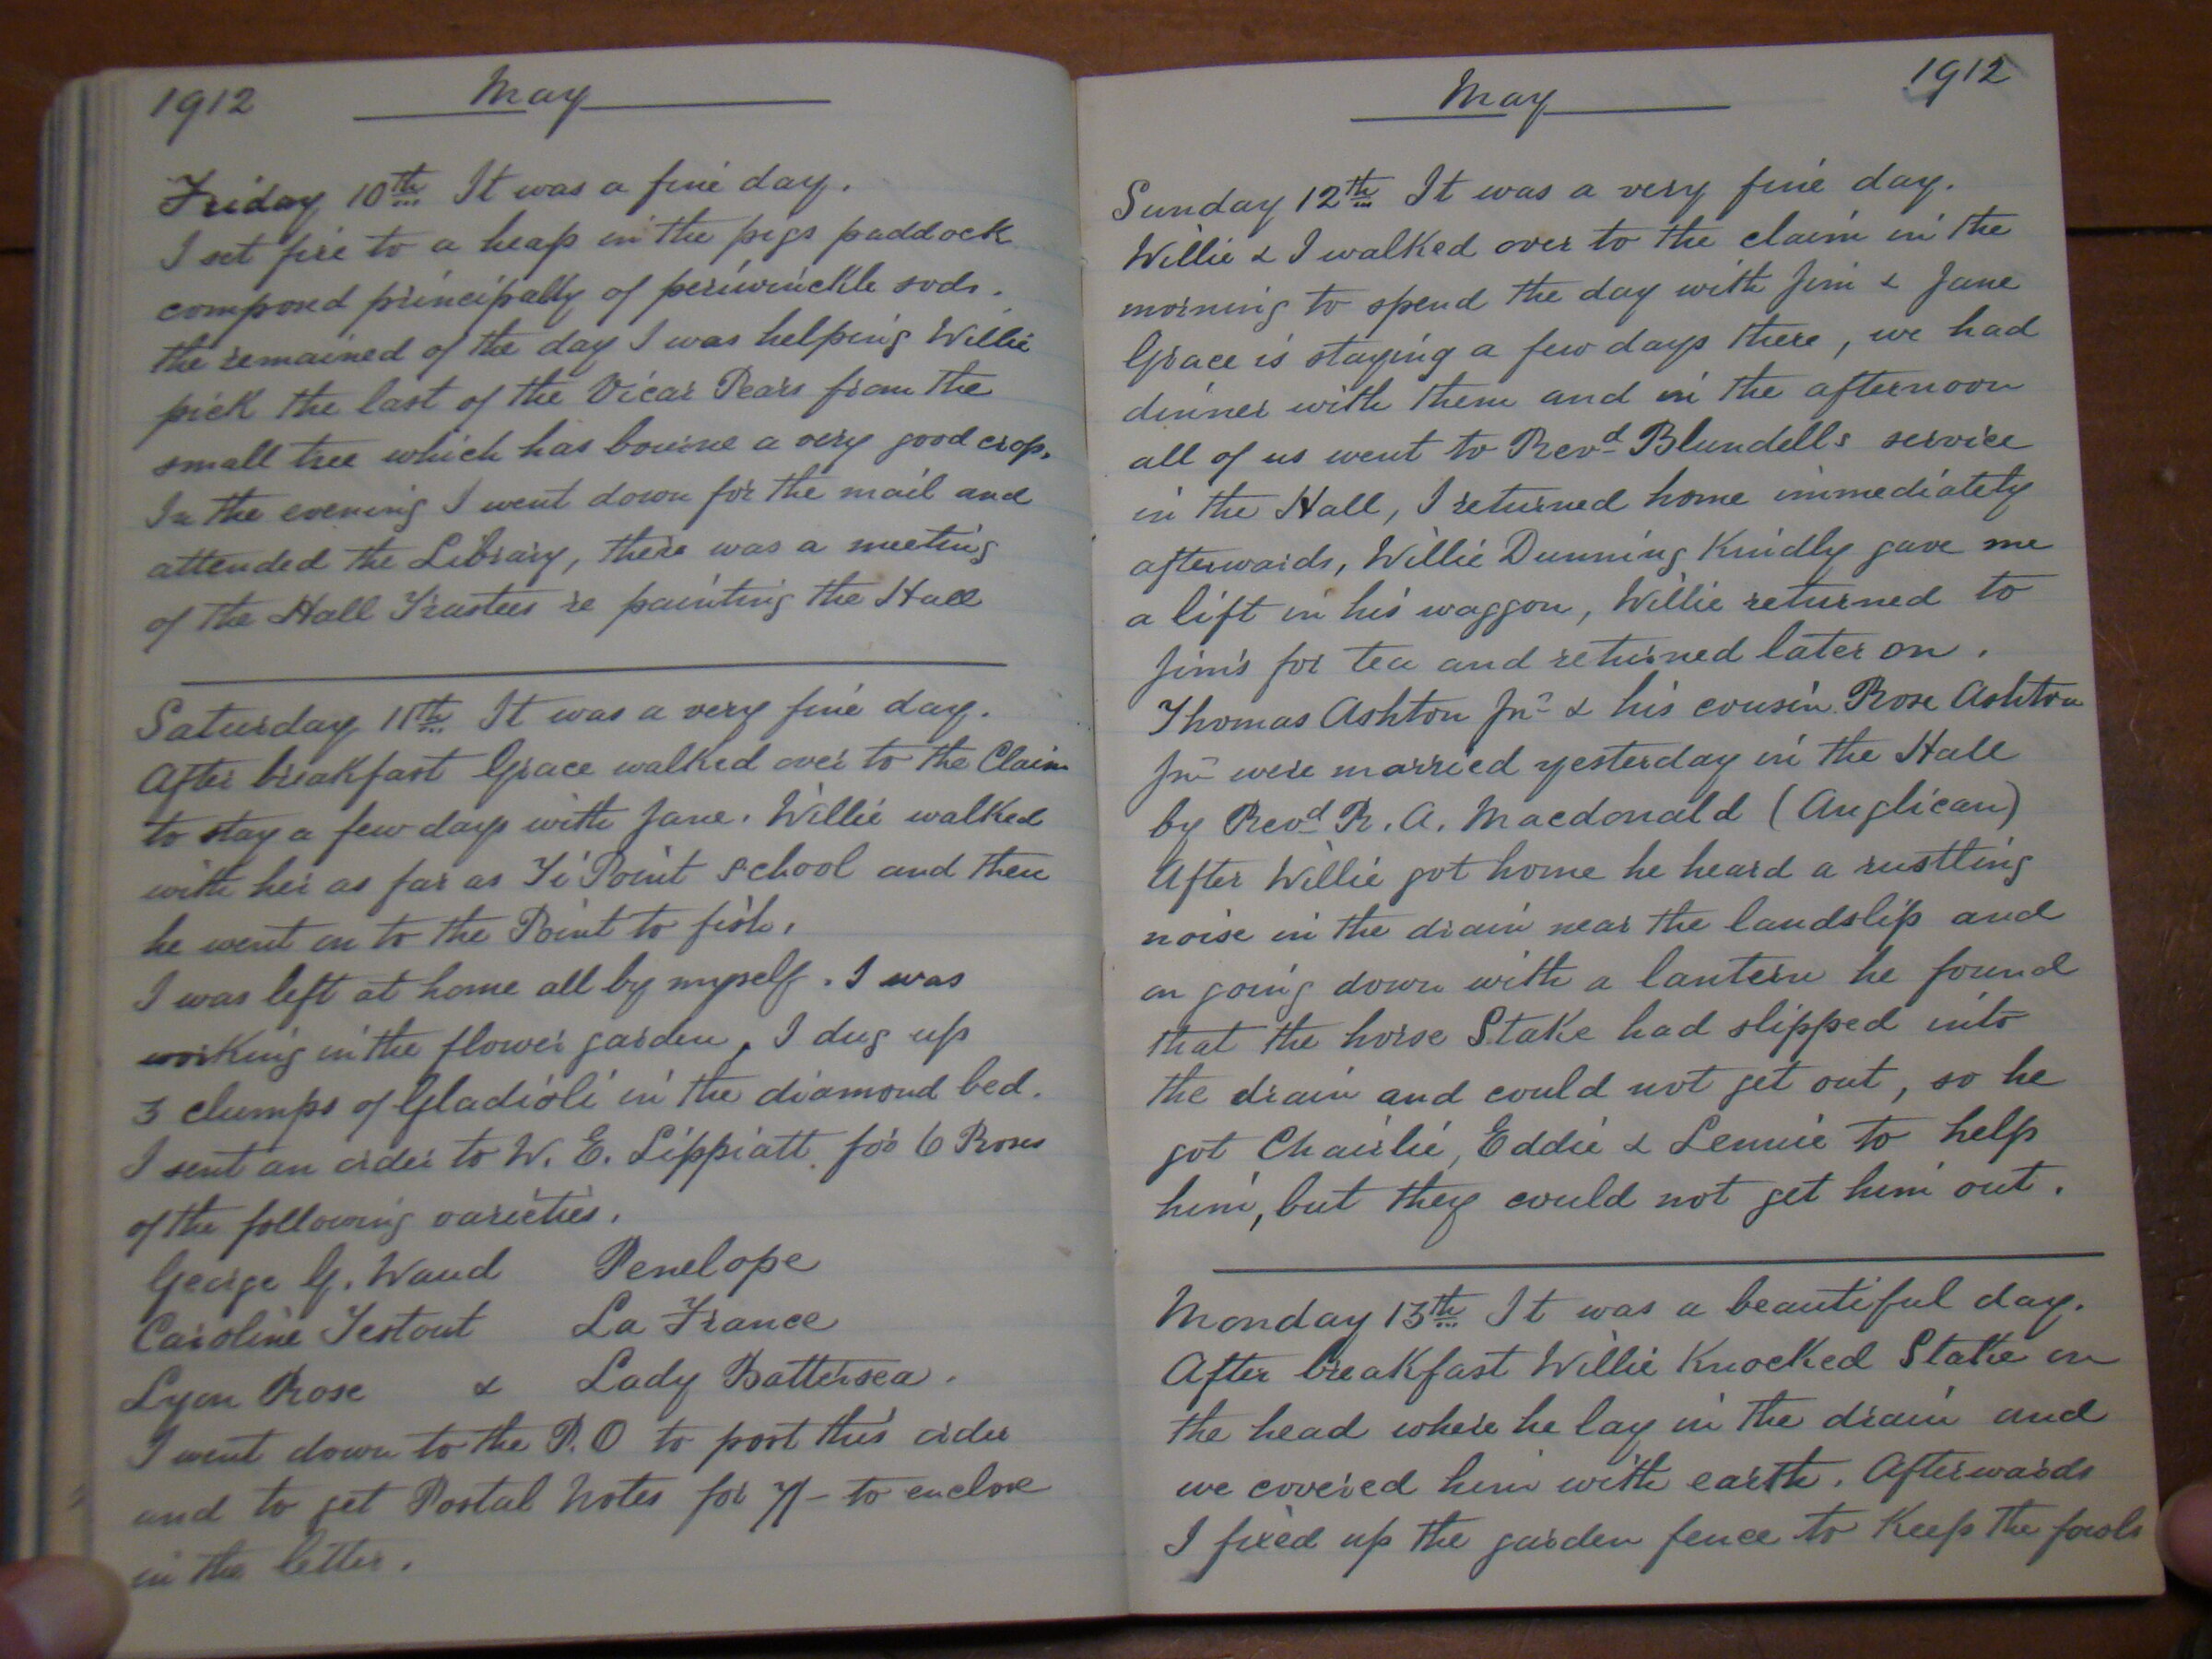 1912 May
Friday 10th It was a fine day.
I set fire to a heap in the pigs paddock
composed principally of periwinckle sods.
the remained of the day I was helping Willie
pick the last of the Vicar Pears from the
small tree which has bourne a very good crop.
In the evening I went down for the mail and
attended the Library, there was a meeting
of the Hall Trustees re painting the Hall
Saturday 11th It was a very fine day.
After breakfast Grace walked over to the Claim
to stay a few days with Jane. Willie walked
with her as far as Ti Point School and then
he went on to the Point to fish.
I was left at home all by myself. I was
working in the flower garden, I dug up
3 clumps of Gladioli in the diamond bed.
I sent an order to W. E. Lippiatt for 6 Roses
of the following varieties.
George G. Waud Penelope
Caroline Testout La France
Lyon Rose & Lady Battersea.
I went down to the P.O to post this order
and to get Postal Notes for 7/- to enclose
in the letter.
May 1912
Sunday 12th It was a very fine day.
Willie & I walked over to the claim in the
morning to spend the day with Jim & Jane
Grace is staying a few days there, we had
dinner with them and in the afternoon
all of us went to Revd Blundells service
in the Hall, I returned home immediately
afterwards, Willie Dunning Kindly gave me
a lift in his waggon, Willie returned to
Jim's for tea and returned later on.
Thomas Ashton Jnr & his cousin Rose Ashton
Jnr were married yesterday in the Hall
by Revd R. A. Macdonald (Anglican)
After Willie got home he heard a rustling
noise in the drain near the landslip and
on going down with a lantern he found
that the horse Stake had slipped into
the drain and could not get out, so he
got Chairlie, Eddie & Lennie to help
him, but they could not get him out.
Monday 13th It was a beautiful day.
After breakfast Willie Knocked Stake on
the head where he lay in the drain and
we covered him with earth. Afterwards
I fixed up the garden fence to Keep the fowls